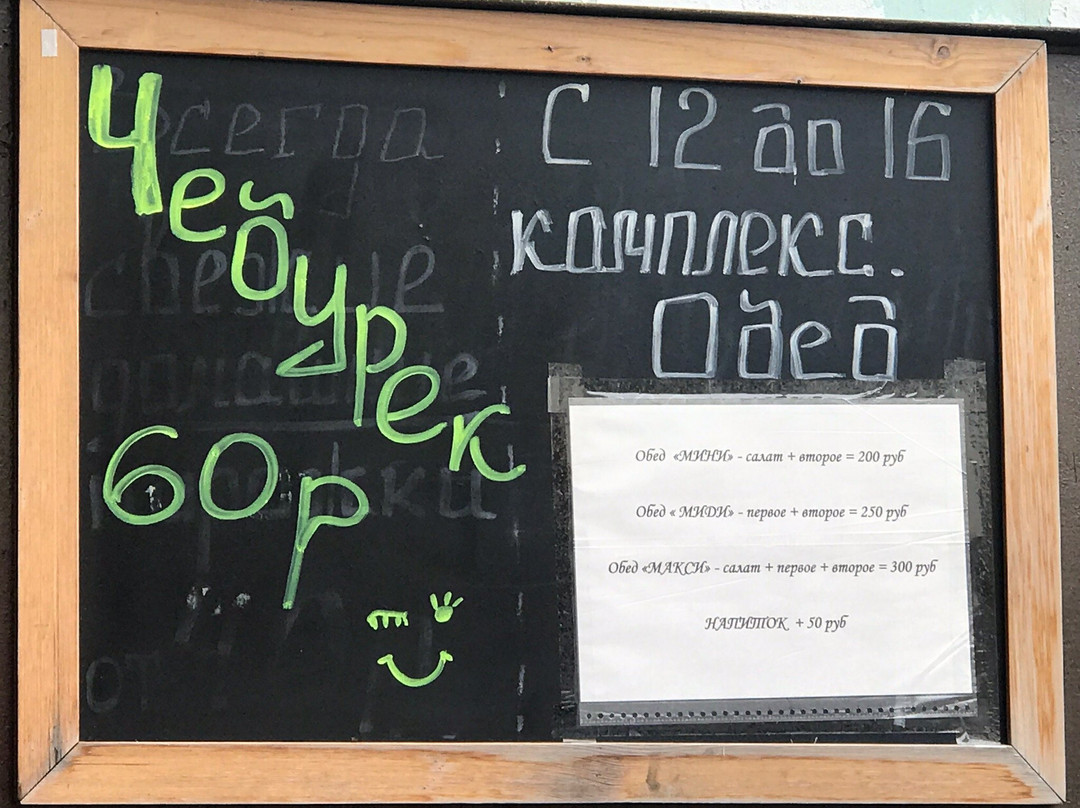 Чебурек
60р
С 12 до 16
комплекс.
Обед
Обед «МИНИ» - салат + второе = 200 руб
Обед « МИДИ» - первое + второе = 250 руб
Обед «МАКСИ» - салат + первое + второе = 300 руб
НАПИТОК + 50 руб
всегда
свежие
домашние
пирожки
от